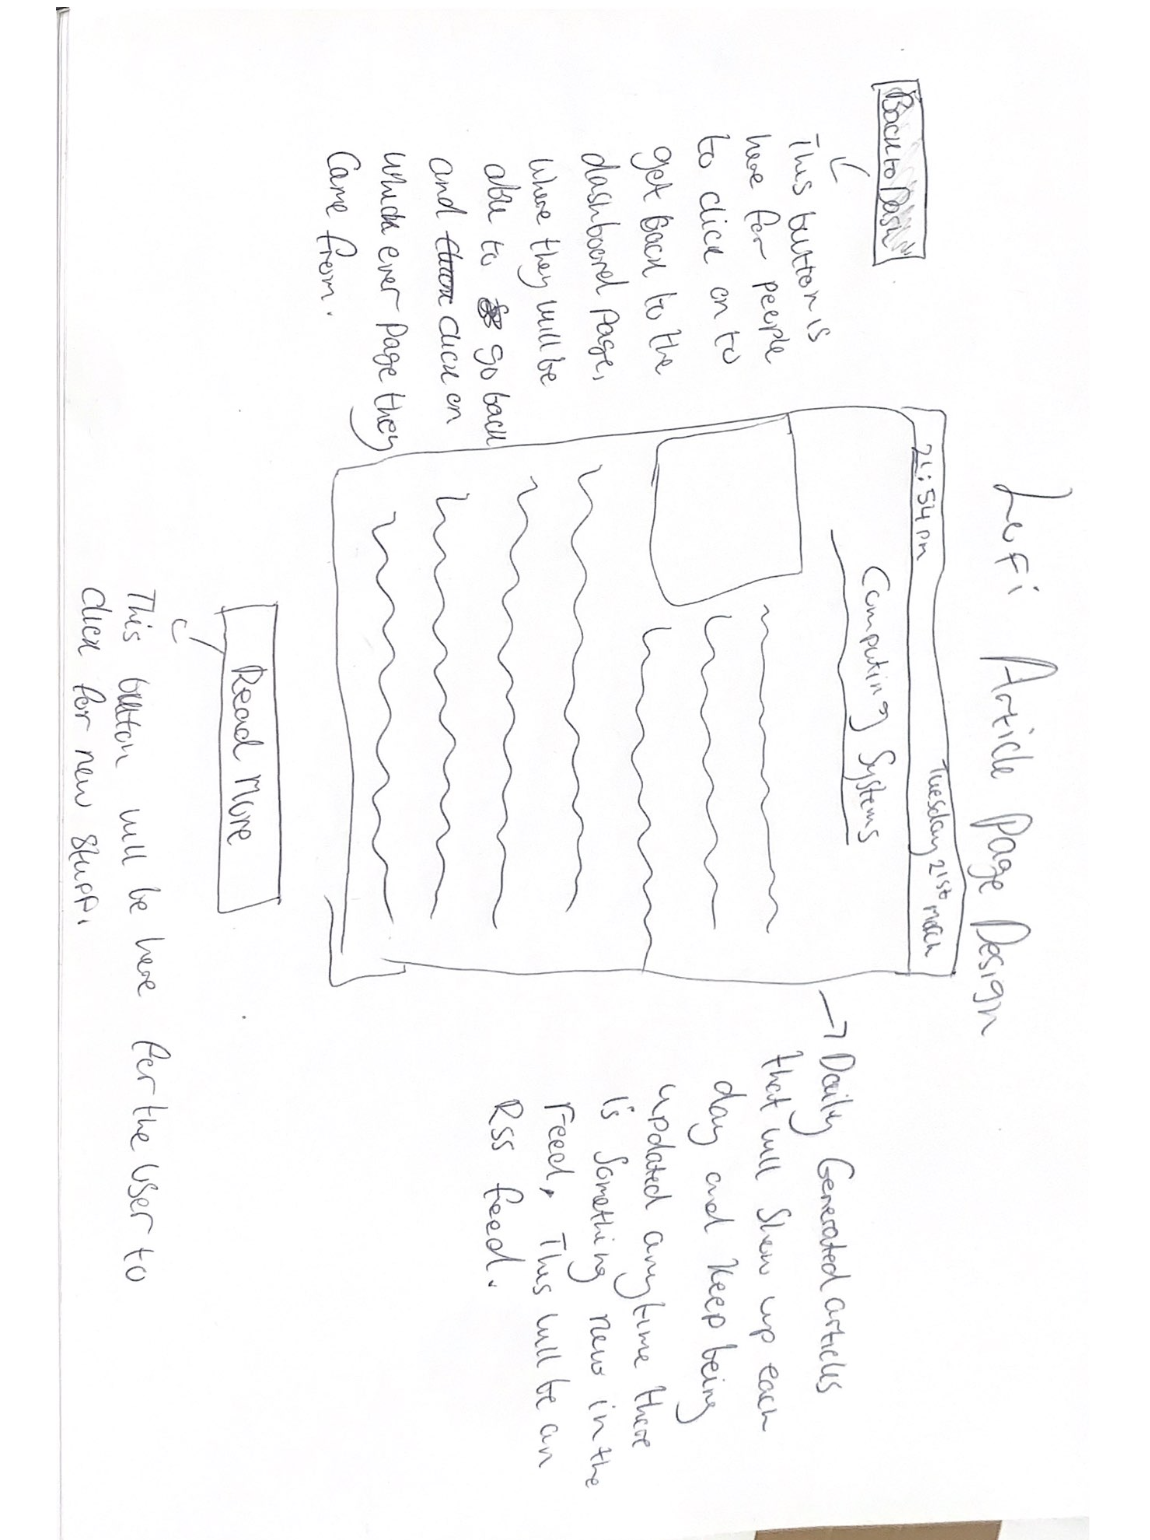 LoFi Article Page Design
Back to Dash
This button is
here for people
to click on to
get back to the
dashboard page,
where they will be
able to go back
and click on
which ever page they
came from.
21:54pm Tuesday 21st March
Computing Systems
Daily Generated articles
that will show up each
day and keep being
updated anytime there
is something new in the
Feed, This will be an
RSS feed.
Read More
This button will be here for the user to
click for new stuff.